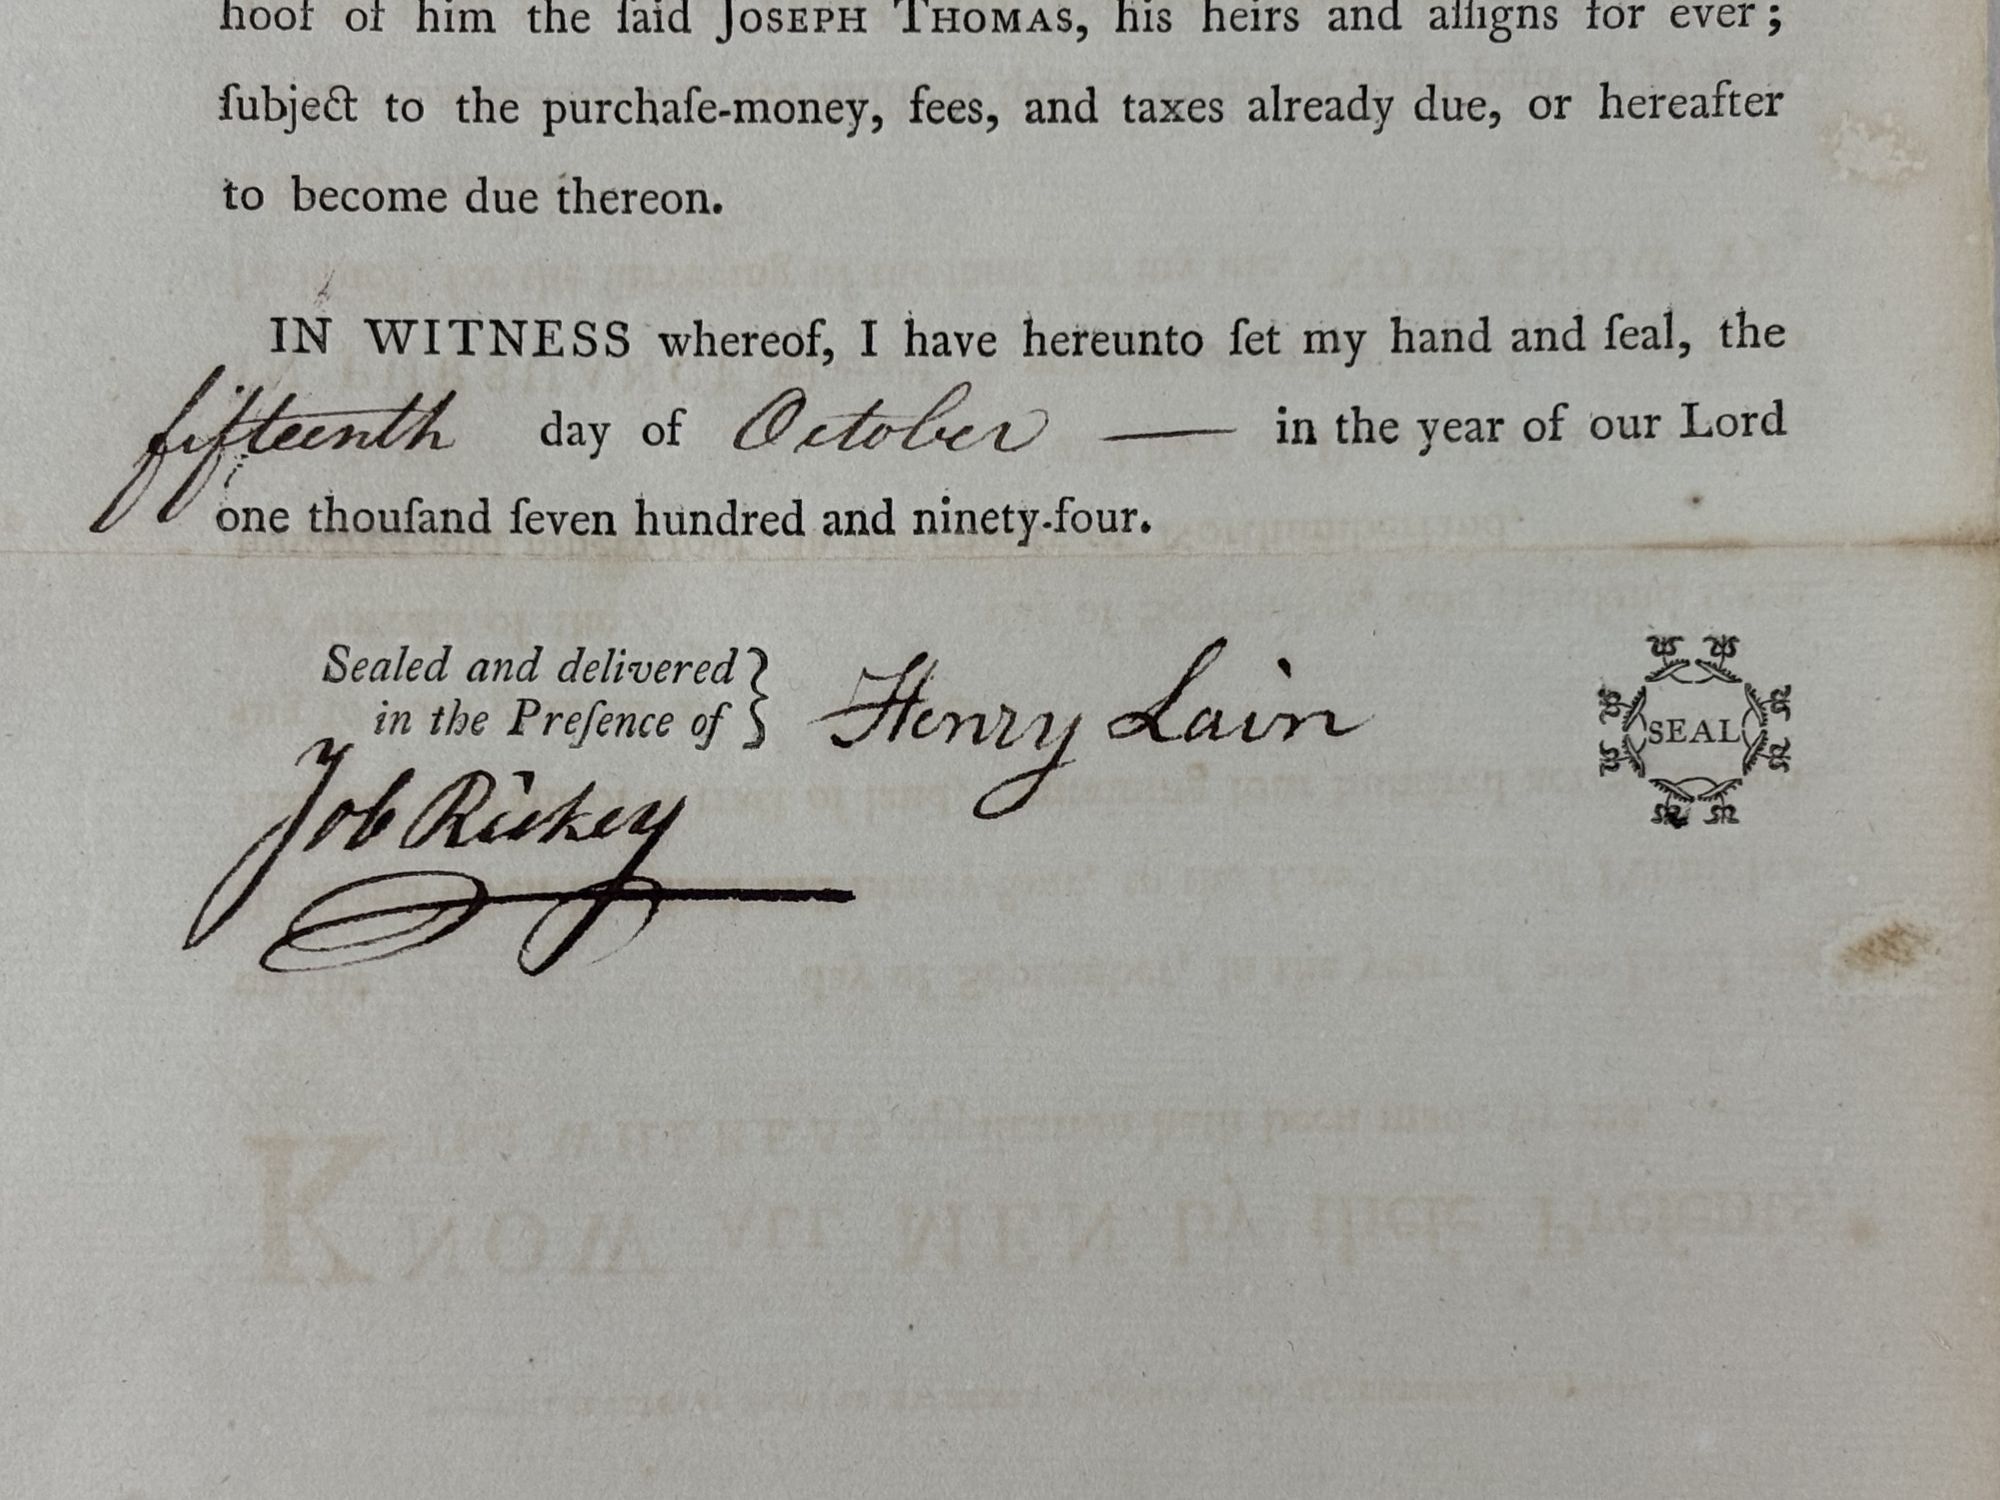 hoof of him the ſaid JOSEPH THOMAS, his heirs and aſſigns for ever;
ſubject to the purchaſe-money, fees, and taxes already due, or hereafter
to become due thereon.
IN WITNESS whereof, I have hereunto ſet my hand and ſeal, the
fifteenth day of October — in the year of our Lord
one thouſand ſeven hundred and ninety-four.
Sealed and delivered
in the Preſence of } Henry Lain
SEAL
Job Rickey
KNOW ALL MEN by theſe Preſents,